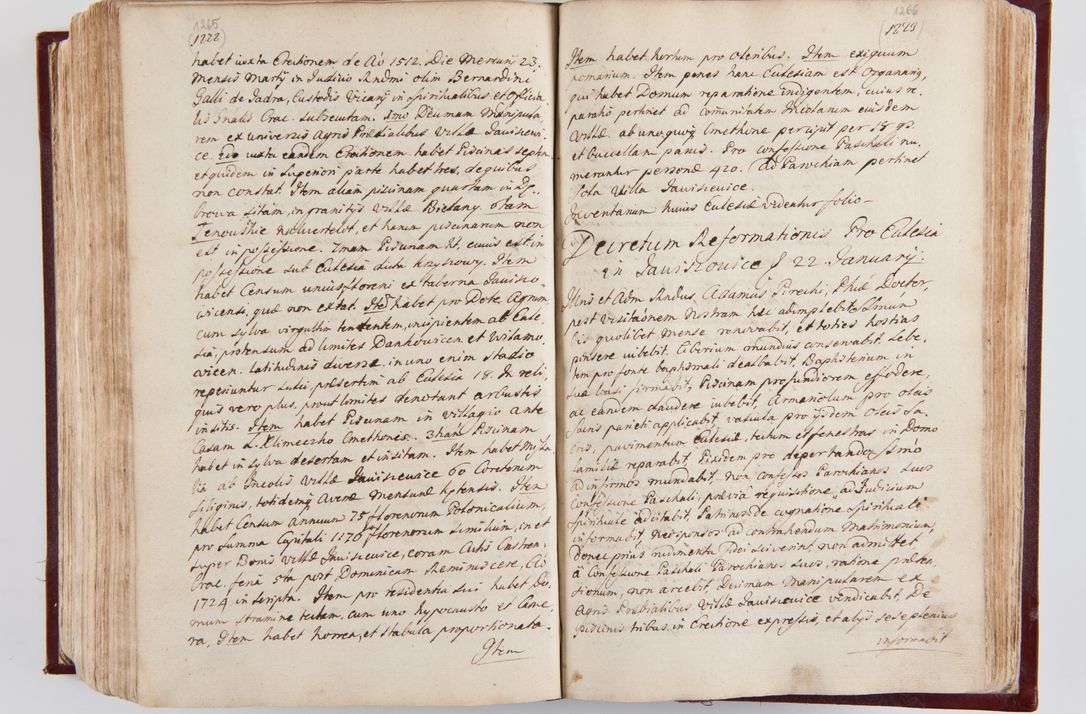 1265
(1222
habet iuxta Erectionem de Aõ 1512. Die Mercurij 23.
Mensis Martij in Iudicio Rndmi olim Bernardini
Galli de Jadra, Custodis Vicarij in Spiritualibus et Officia,
lis Gñalis Crac. subsecutam. Imo Decimam Manipula,
rem ex universis agris Prædialibus Villæ Jawiszewi,
ce. 2do iuxta eandem Erectionem habet Piscinas septem
et quidem in superiori parte habet tres, de quibus
non constat. Item aliam piscinam quartam in
browa sitam, in granitijs Villæ Bielany. 5tam
et hanc piscinarum non
est in possessione. 7mam Piscinam
possessione sub Ecclesia dicta krzyzowy. Item
habet Censum unius floreni ex taberna Jawiszo,
vicensi, quæ non extat. Item habet pro Dote Agrum
cum sylva virgultis incipientem ab Eccle,
sia, protensum ad limites Dankovicen et Wilamo,
vicen. latitudinis diversæ. in uno enim stadio
reperiuntur præsertim ab Ecclesia 18. In reli,
quis vero plus, prout limites denotant arbustis
insitis. Item habet Piscinam in villagio ante
Casam L. Klimeczko Cmethonis. 3tiam Piscinam
habet in sylva desertam et insitam. Item habet
ab Incolis Villæ Jawiszewice 60 Coretorum
siliginis, totidemq Avenæ Mensuræ kętensis. Item
habet Censum annuum 75 florenorum Polonicalium,
pro summa Capitali 1170 florenorum similium, in et
super Bonis Villæ Jawiszewice, coram Actis Castren,
Crac. feria 5ta post Dominicam Reminiscere, Aõ
1724 inscripta. Item pro residentia sui habet Do,
mum stramine tectam, cum uno hypocausto et Came,
ra, Item habet horrea, et stabula proportionata.
Item
1266
(1223
Item habet hortum pro oleribus. Item exiguum
pomarium. Item penes hanc Ecclesiam est Organariq,
qui habet Domum reparatione indigentem, cuius re,
paratio pertinet ad Communitatem Incolarum eiusdem
Villæ. ab unoquoq Cmethone percipit per 15 gr.
et buccellam panis. Pro confessione Paschali nu,
merantur personæ 420. Ad Parochiam pertinet
sola Villa Jawiszewice.
Inventarium huius Ecclesiæ videntur folio—
Decretum Reformationis Pro Ecclesia
in Jawiszowice d 22 January.
Illris et Adm. Rndus, Adamus Pirecki, Phiæ Doctor,
post Visitationem Nostram hæc adimplebit. Ssmum
bis quolibet Mense renovabit, et toties hostias
pinsere iubebit. Ciborium mundius conservabit. Lebe,
tem pro fonte baptismali dealbabit. Baptisterium in
suæ basi firmabit, Piscinam profundiorem effodere,
ac eandem claudere iubebit, Armariolum pro oleis
sacris parieti applicabit, vascula pro ijsdem oleis sa,
cris, pavimentum Ecclesiæ, tectum et fenestras in Domo
familiæ reparabit. Pixidem pro deportando Ssmo
ad infirmos mundabit. Non confessos Parochianos suos
Confessione Paschali, prævia requisitione, ad Iudicium
spirituale adcitabit. Patrinos de cognatione spirituali
informabit. Neosponsos ad contrahendum Matrimonium,
donec prius rudimenta fidei sciverint, non admittet
à Confessione Paschali Parochianos suos, ratione prætex,
tionum, non arcebit. Decimam manipularem ex
agris Prædialibus Villæ Jawiszewice vendicabit. De
piscinis tribus, in Erectione expressis, et alijs se se plenius
informabit